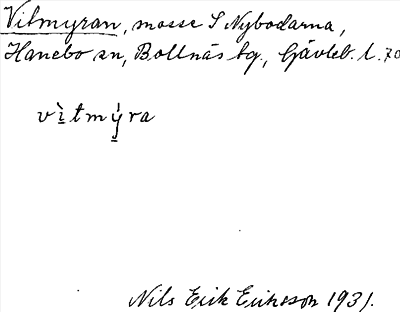 Vitmyran, mosse S Nybodarna,
Hanebo sn, Bollnäs tg., Gävleb. l. 70
vìtmýra
Nils Erik Ericsson 1931.